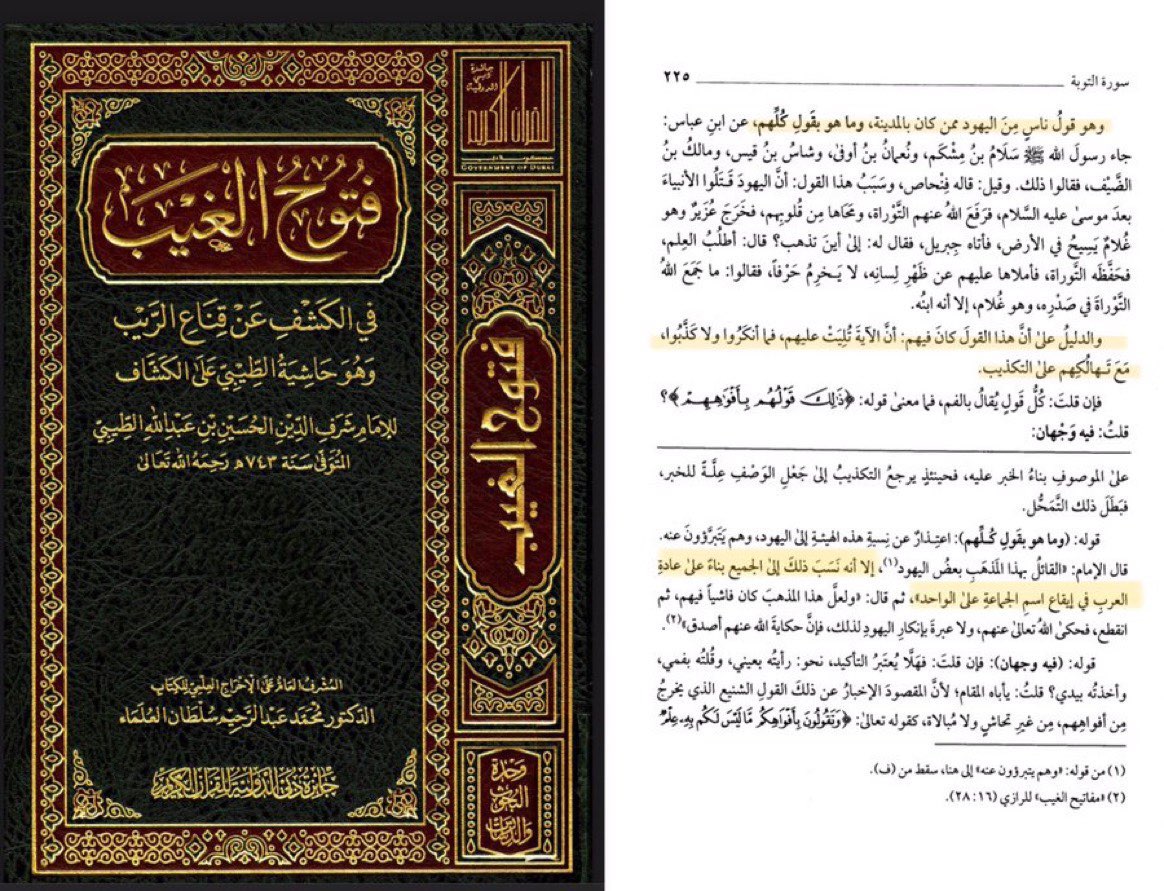 جائزة
دبي
الدولية
للقرآن الكريم
GOVERNMENT OF DUBAI
فُتُوحُ الْغَيْبِ
فِي الكَشْفِ عَنْ قِنَاعِ الرَّيْبِ
وَهُوَ حَاشِيَةُ الطِّيبِيِّ عَلَى الكَشَّافِ
للإمَامِ شَرَفِ الدِّينِ الحُسَيْنِ بْنِ عَبْدِ اللهِ الطِّيبِيِّ
المُتَوَفَّى سَنَة ٧٤٣ه رَحِمَهُ اللهُ تَعَالَى
المُشْرِفُ العَامُّ عَلَى الإِخْرَاجِ العِلْمِيِّ لِلْكِتَابِ
الدكتور مُحَمَّد عَبْد الرَّحِيم سُلْطَان العُلَمَاء
جَائِزَة دُبَيّ الدَّوْلِيَّة لِلْقُرْآنِ الكَرِيم
فتوح الغيب
وَحْدَة
البُحُوث
وَالدِّرَاسَات
سورة التوبة ٢٢٥
وهو قولُ ناسٍ مِنَ اليهود ممن كان بالمدينة، وما هو بقَولِ كُلِّهم، عن ابنِ عباس:
جاء رسولَ الله ﷺ سَلَامُ بنُ مِشْكَم، ونُعمانُ بنُ أوفى، وشاسُ بنُ قيس، ومالكُ بنُ
الضَّيْف، فقالوا ذلك. وقيل: قاله فِنْحاص، وسَبَبُ هذا القول: أنَّ اليهودَ قَتَلُوا الأنبياءَ
بعدَ موسىٰ عليه السَّلام، فرَفَعَ اللهُ عنهم التَّوْراة، ومَحَاها مِن قُلوبِهم، فخَرَجَ عُزَيْرٌ وهو
غُلامٌ يَسِيحُ في الأرض، فأتاه جِبريل، فقال له: إلىٰ أينَ تذهب؟ قال: أطلُبُ العِلم،
فحَفَّظَه التَّوراة، فأملاها عليهم عن ظَهْرِ لِسانِه، لا يَخرِمُ حَرْفاً، فقالوا: ما جَمَعَ اللهُ
التَّوْراةَ في صَدْرِه، وهو غُلام، إلا أنه ابنُه.
والدليلُ علىٰ أنَّ هذا القولَ كانَ فيهم: أنَّ الآيةَ تُلِيَتْ عليهم، فما أنكَرُوا ولا كَذَّبُوا،
مَعَ تَهالُكِهم علىٰ التكذيب.
فإن قلتَ: كُلُّ قولٍ يُقالُ بالفم، فما معنىٰ قوله: ﴿ذَٰلِكَ قَوْلُهُم بِأَفْوَاهِهِمْ﴾؟
قلتُ: فيه وَجْهان:
علىٰ الموصوفِ بناءُ الخبر عليه، فحينئذٍ يرجعُ التكذيبُ إلىٰ جَعْلِ الوَصْفِ عِلّةً للخبر،
فبَطَلَ ذلك التَّمَحُّل.
قوله: (وما هو بقَولِ كُلِّهم): اعتِذارٌ عن نِسبةِ هذه الهيئةِ إلىٰ اليهود، وهم يَتَبرَّؤونَ عنه.
قال الإمام: «القائلُ بهذا المَذهَبِ بعضُ اليهود(١)، إلا أنه نَسَبَ ذلكَ إلىٰ الجميع بناءً علىٰ عادةِ
العربِ في إيقاع اسمِ الجماعةِ علىٰ الواحد»، ثم قال: «ولعلَّ هذا المذهبَ كان فاشياً فيهم، ثم
انقطع، فحكىٰ اللهُ تعالىٰ عنهم، ولا عبرةَ بإنكارِ اليهودِ لذلك، فإنَّ حكايةَ الله عنهم أصدق»(٢).
قوله: (فيه وجهان): فإن قلتَ: فهَلَّا يُعتبَرُ التأكيد، نحو: رأيتُه بعيني، وقُلتُه بفمي،
وأخذتُه بيدي؟ قلتُ: يأباه المقام؛ لأنَّ المقصودَ الإخبارُ عن ذلكَ القولِ الشنيع الذي يخرجُ
مِن أفواهِهم، مِن غيرِ تحاشٍ ولا مُبالاة، كقوله تعالىٰ: ﴿وَتَقُولُونَ بِأَفْوَاهِكُم مَّا لَيْسَ لَكُم بِهِ عِلْمٌ﴾
(١) من قوله: «وهم يتبرؤون عنه» إلىٰ هنا، سقط من (ف).
(٢) «مفاتيح الغيب» للرازي (١٦: ٢٨).